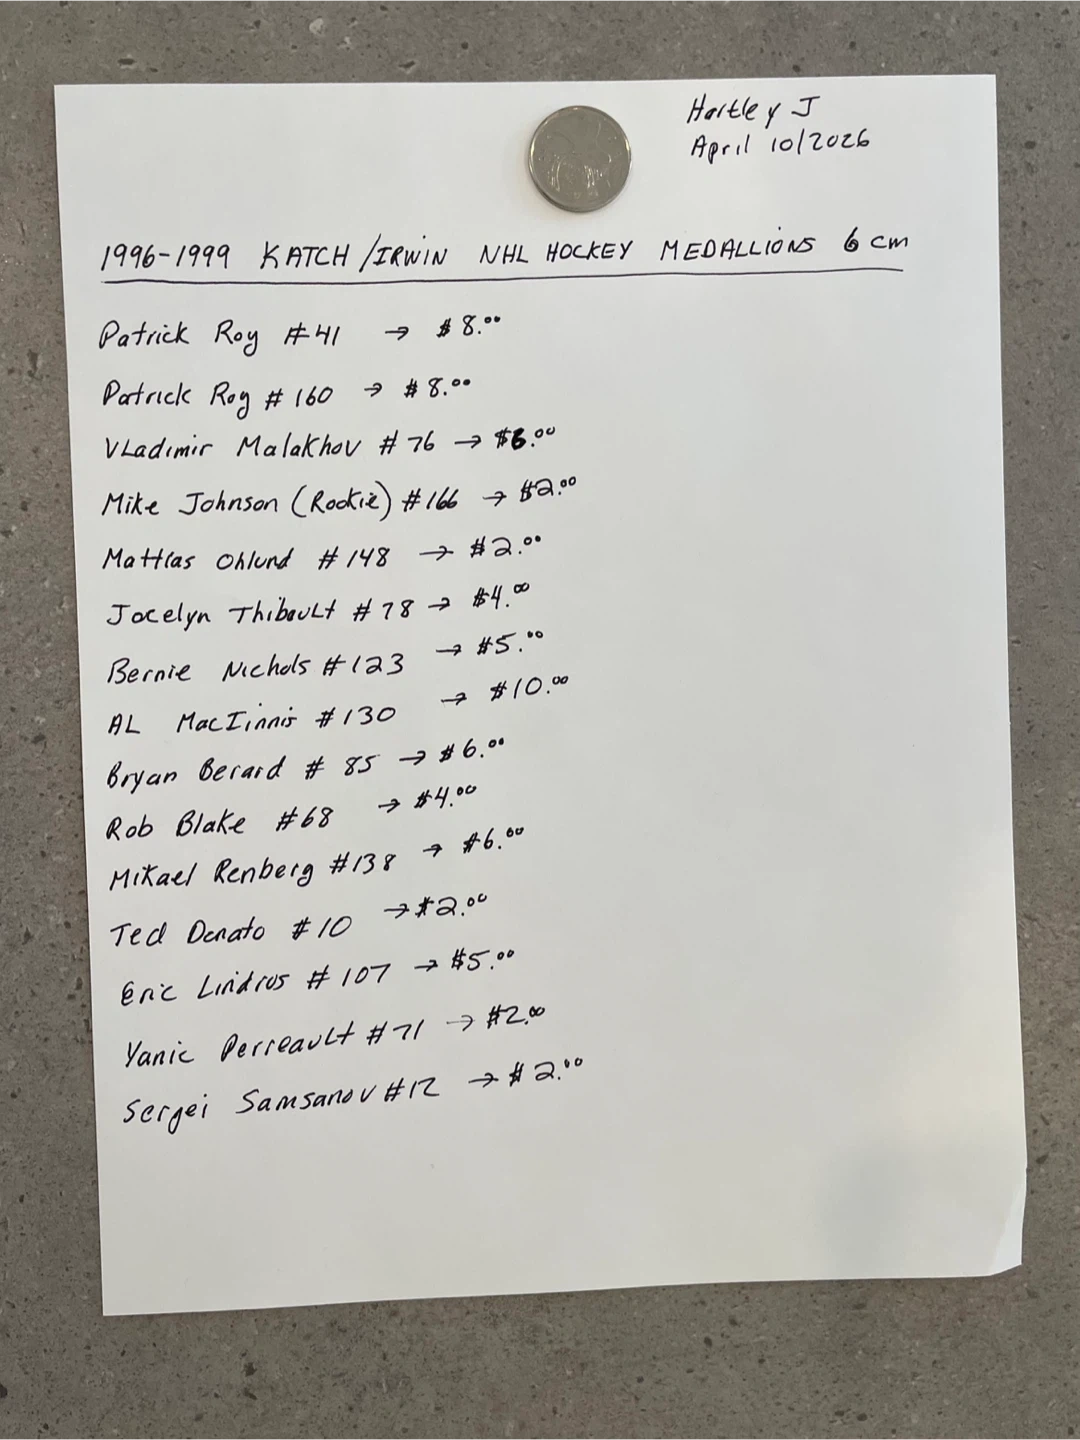 Hartley J
April 10/2026
1996-1999 KATCH/IRWIN NHL HOCKEY MEDALLIONS 6 cm
Patrick Roy #41 → $8.00
Patrick Roy #160 → $8.00
Vladimir Malakhov #76 → $6.00
Mike Johnson (Rookie) #166 → $2.00
Mattias Ohlund #148 → $2.00
Jocelyn Thibault #78 → $4.00
Bernie Nichols #123 → $5.00
AL MacIinnis #130 → $10.00
Bryan Berard # 85 → $6.00
Rob Blake #68 → $4.00
Mikael Renberg #138 → $6.00
Ted Donato #10 → $2.00
Eric Lindros # 107 → $5.00
Yanic Perreault #71 → $2.00
Sergei Samsanov #12 → $2.00